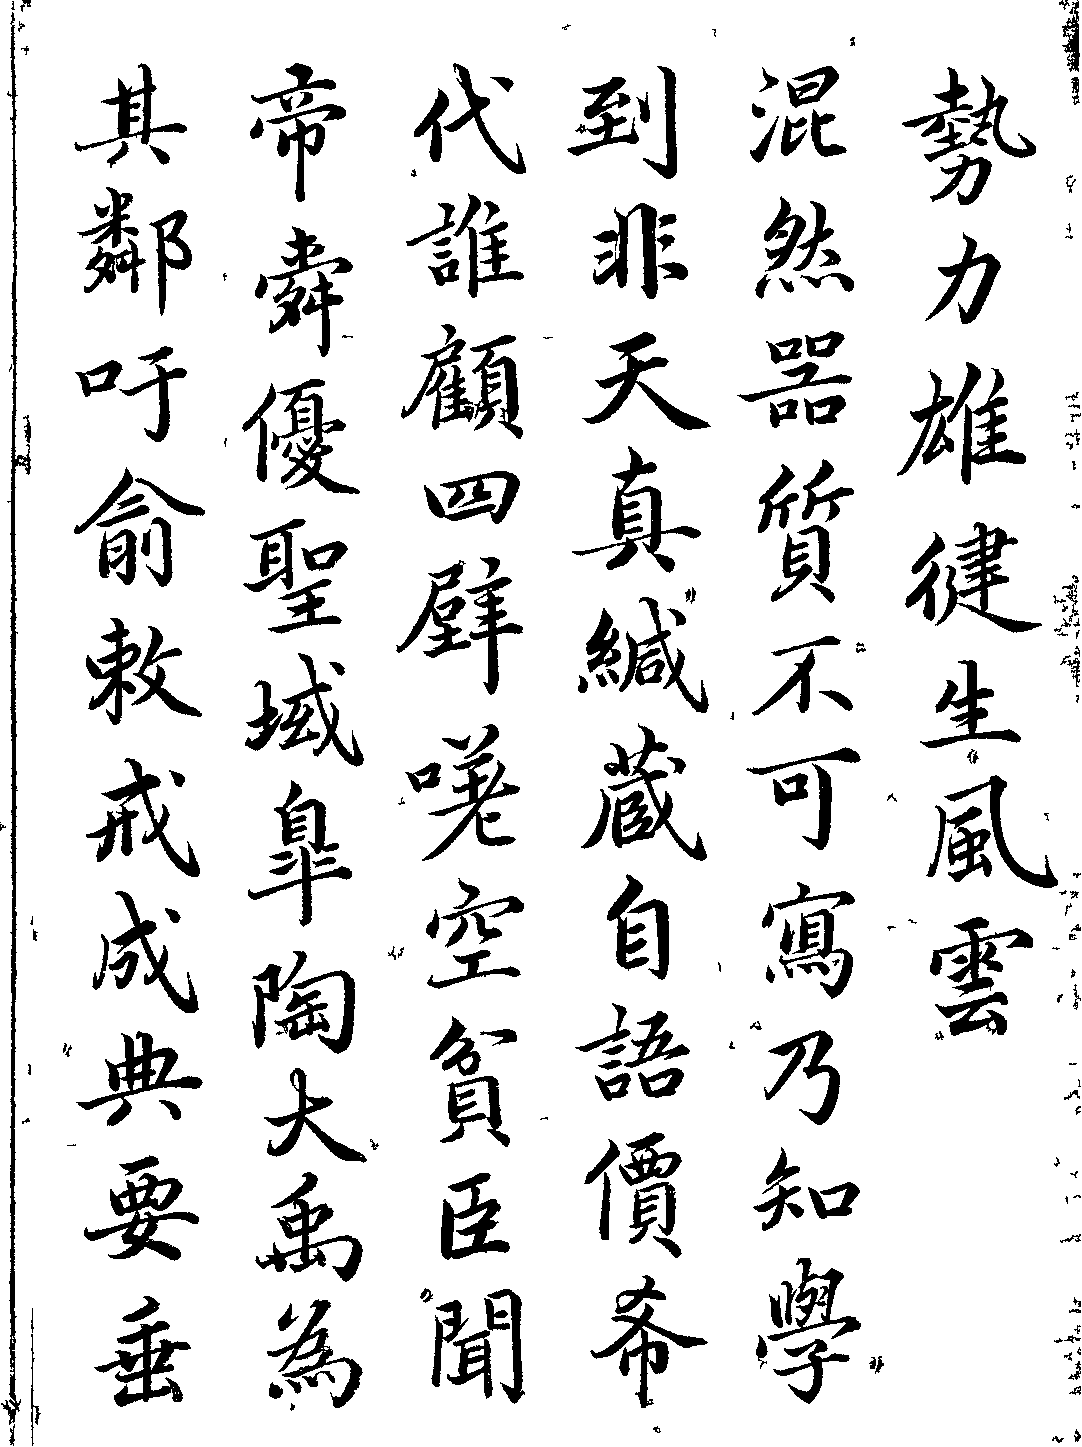 勢力雄健生風雲
混然器質不可寫乃知學
到非天真緘藏自語價希
代誰顧四壁嗟空貧臣聞
帝舜優聖域皐陶大禹為
其鄰吁俞敕戒成典要垂